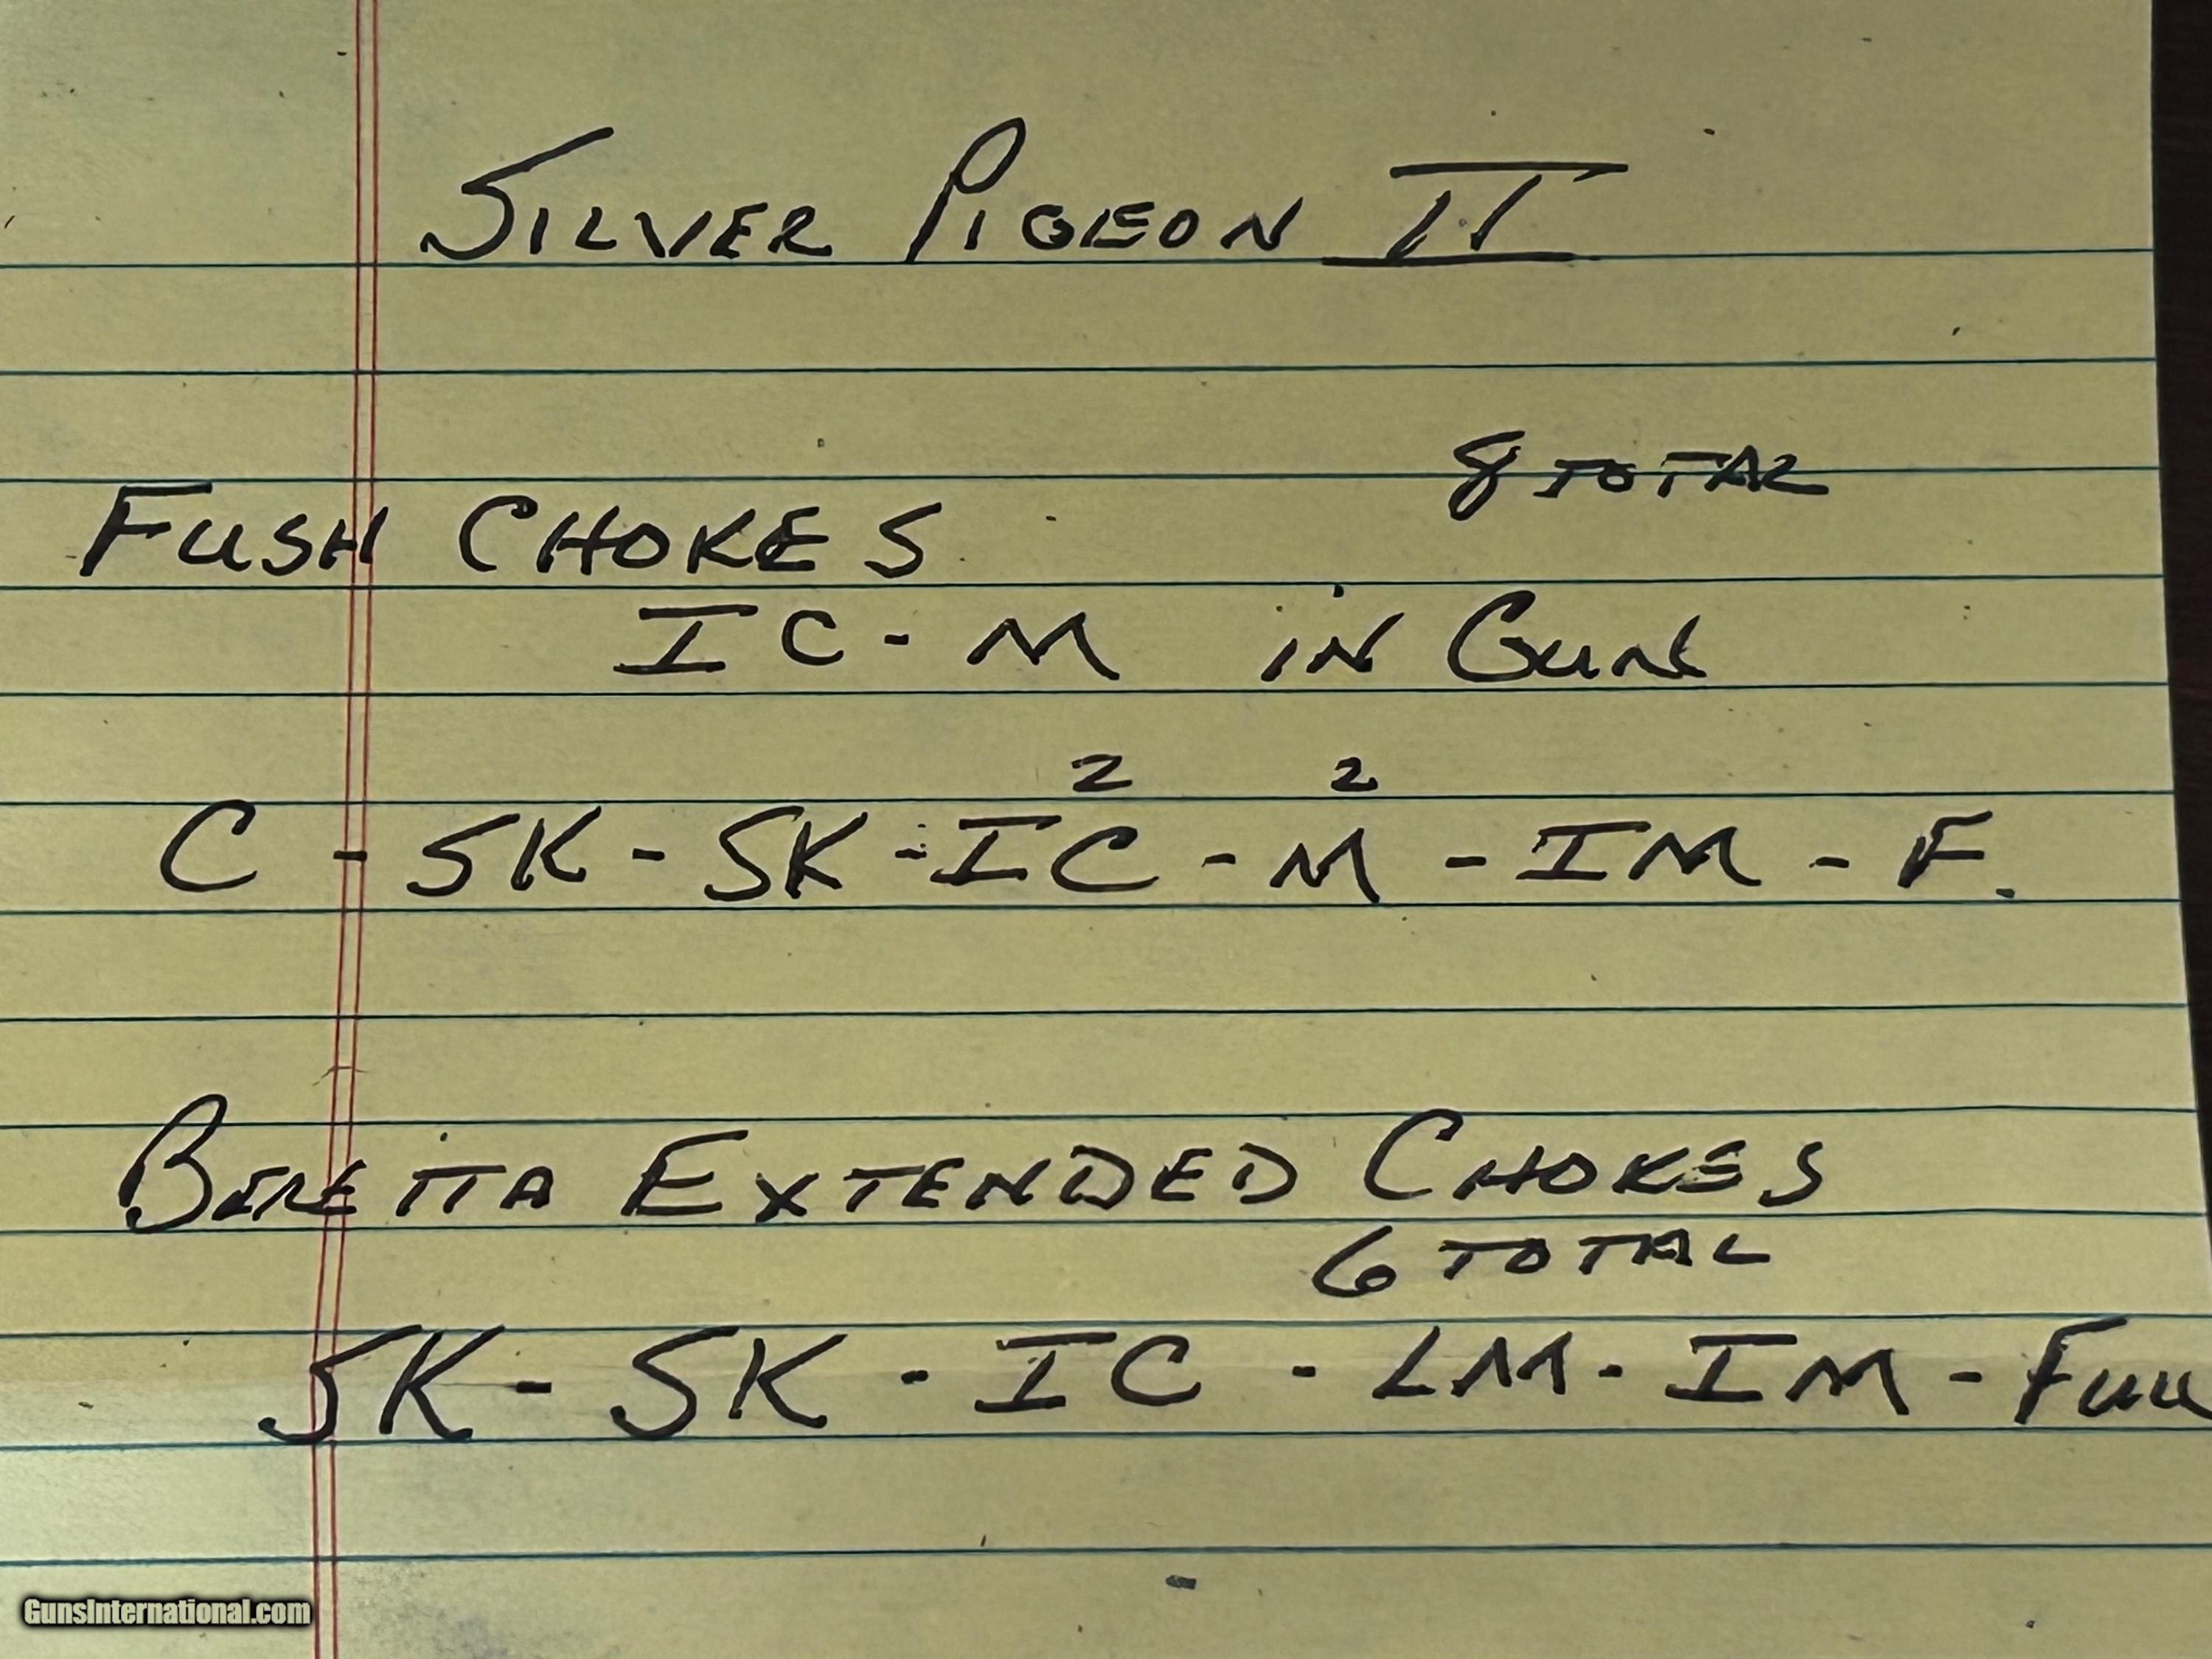 SILVER PIGEON II
8 TOTAL
FUSH CHOKES
IC - M IN GUN
2 2
C - SK - SK - IC - M - IM - F.
BERETTA EXTENDED CHOKES
6 TOTAL
SK - SK - IC - LM - IM - FULL
GunsInternational.com